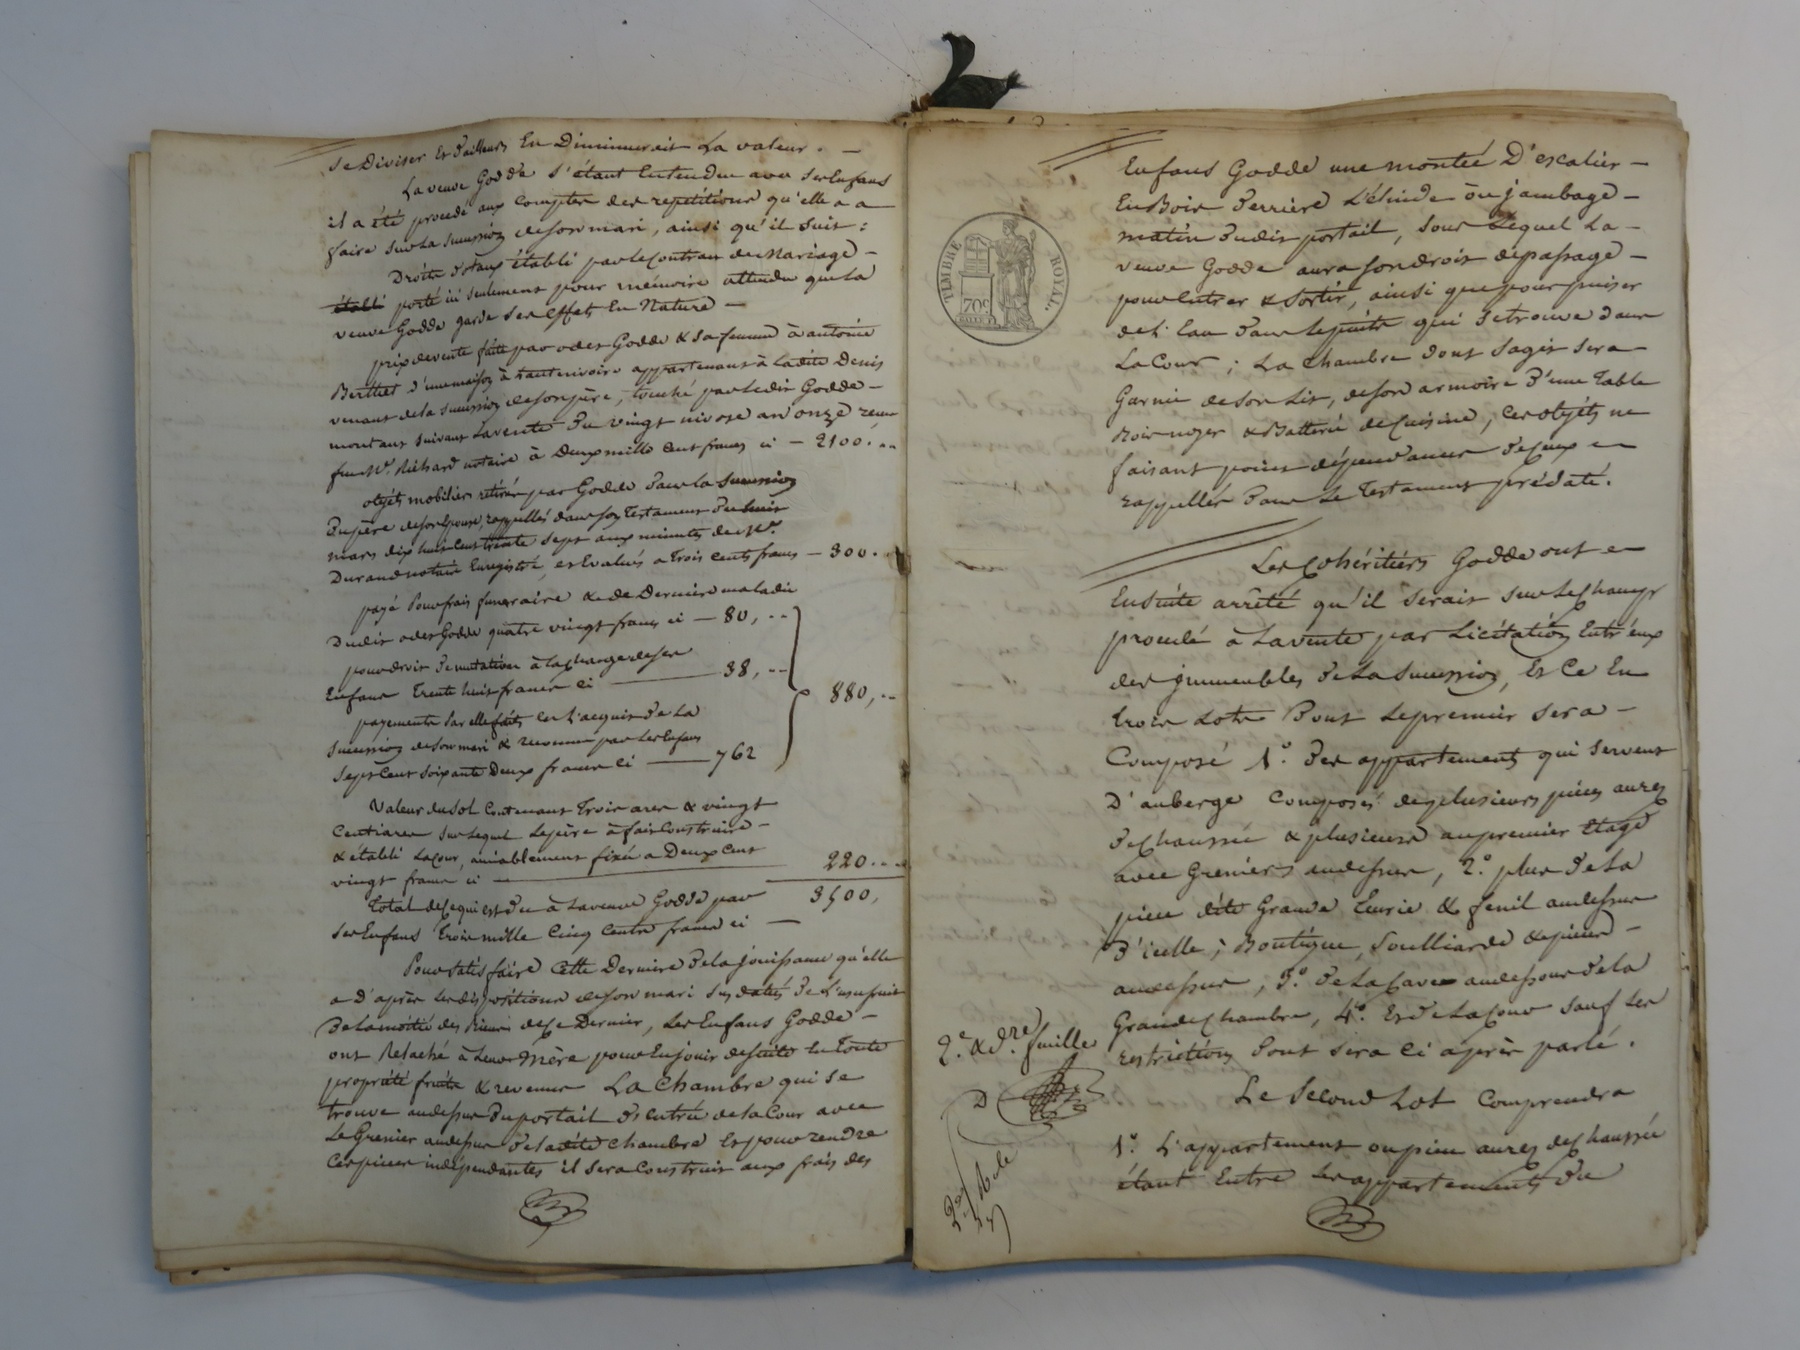 se Diviser Et d'ailleurs En Diminuerait La valeur. —
La veuve Godde s'étant Entendue avec ses Enfans
il a été procédé aux Comptes des repétitions qu'elle a a
faire sur La succession de son mari, ainsi qu'il suit :
Droits établi par le Contrat de Mariage —
établi porté ici seulement pour mémoire attendu que La
veuve Godde garde ses Effets En Nature —
prix de vente faite par Godde & sa femme à antoine
Berthet d'une maison à hauterivoire appartenant à La dite Denis
venant de la succession de son père, touché par Le dit Godde —
montant suivant La vente Du vingt nivose an onze reçue
Me. Richard notaire à Deux mille Cent francs ci — 2100. "
objets mobiliers retirés par Godde Dans La succession
Du père de son Epouse, rappellés dans son Testament Du huit
mars dix huit Cent trente sept aux minutes de Me.
Durand notaire Enregistré, et Evalués a Trois Cents francs — 300. "
payé Pour frais funeraire & de Derniere maladie
Dudit Godde quatre vingt francs ci — 80, "
pour droit De mutation à La charge de ses
Enfans Trente huit francs ci — 38, "
880, "
payements par elle faits En L'acquit De La
succession de son mari & reconnu par Les Enfans
Sept Cent soixante Deux francs Ci — 762
Valeur du sol Contenant Trois ares & vingt
Centiares sur Lequel Le père à fait Construire —
& établi La Cour, amiablement fixée a Deux Cent
vingt francs ci — 220. "
Total de Ce qui est Du à La veuve Godde par 3500,
ses Enfans Trois mille Cinq Cents francs ci —
Pour satisfaire Cette Derniere De la jouissance qu'elle
a D'après Les dispositions de son mari sus datés De L'usufruit
De La moitié des Biens de Ce Dernier, Les Enfans Godde —
ont Relaché à Leur Mère pour En jouir de suite En Toute
propriété fruits & revenus La Chambre qui se
trouve au dessus Du portail D'entrée de La Cour avec
Le Grenier au dessus De la dite Chambre Et pour rendre
Ces pièces indépendantes il sera Construit aux frais des
TIMBRE ROYAL.
70c
Enfans Godde une montée D'escalier —
En Bois Derrière ou jambage —
matin Dudit portail, sous Lequel La —
veuve Godde aura son droit de passage —
pour Entrer & Sortir, ainsi que pour puiser
de L'Eau Dans Le puits qui se trouve Dans
La Cour ; La Chambre dont s'agit sera
Garnie de son Lit, de son armoire D'une Table
Bois noyer & Batterie de Cuisine, Ces objets ne
faisant point dépendances De Ceux —
rappellés Dans Le Testament prédaté.
Les Cohéritiers Godde ont —
Ensuite arrêté qu'il serait sur Le champ
procédé à La vente par Licitation Entr'eux
des jmmeubles De La succession, Et Ce En
trois Lots Dont Le premier sera —
Composé 1°. Des appartements qui servent
D'auberge Composés de plusieurs pièces au rez
de chaussée & plusieurs au premier Etage
avec Greniers au dessus, 2°. plus De La
pièce dite Grande Ecurie & fenil au dessus
D'icelle ; Boutique, Soulliarde & pièces —
au dessus, 3°. De La Cave au dessous De La
Grande Chambre, 4°. Et De La Cour sauf Les
restrictions Dont sera Ci après parlé.
Le Second Lot Comprendra
1°. L'appartement ou pièce au rez de chaussée
étant Entre Les appartements Du
2e. & dre. feuille
D